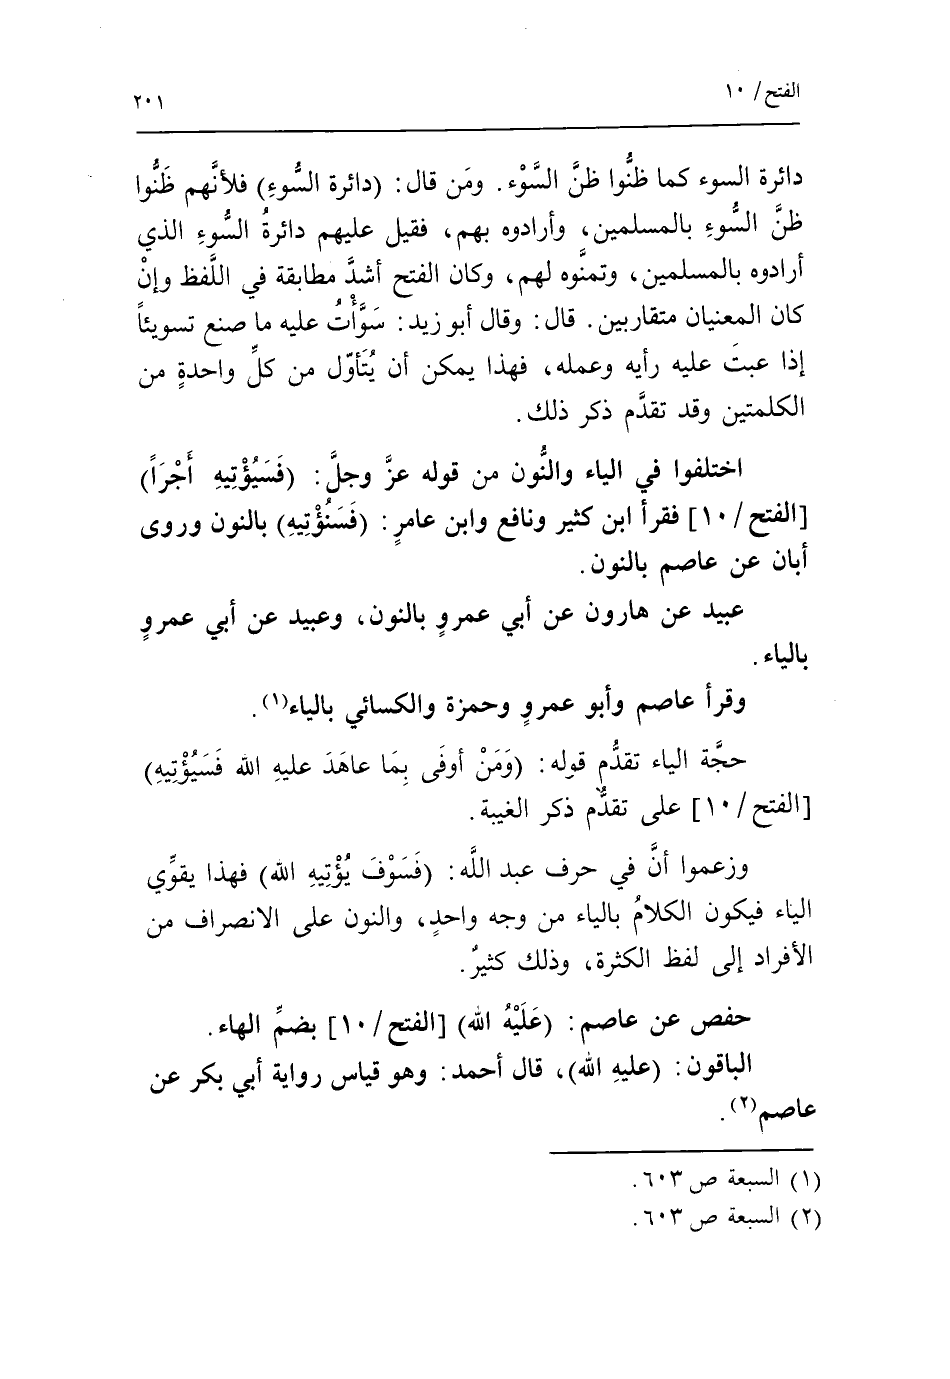 الفتح/ ١٠
٢٠١
دائرة السوء كما ظنُّوا ظنَّ السَّوْء. ومَن قال: (دائرة السُّوءِ) فلأنَّهم ظَنُّوا
ظنَّ السُّوءِ بالمسلمين، وأرادوه بهم، فقيل عليهم دائرةُ السُّوءِ الذي
أرادوه بالمسلمين، وتمنَّوه لهم، وكان الفتح أشدَّ مطابقة في اللَّفظ وإنْ
كان المعنيان متقاربين. قال: وقال أبو زيد: سَوَّأْتُ عليه ما صنع تسويئاً
إذا عبتَ عليه رأيه وعمله، فهذا يمكن أن يُتَأوّل من كلِّ واحدةٍ من
الكلمتين وقد تقدَّم ذكر ذلك.
اختلفوا في الياء والنُّون من قوله عزَّ وجلَّ: (فَسَيُؤْتِيهِ أَجْرَاً)
[الفتح/ ١٠] فقرأ ابن كثير ونافع وابن عامرٍ: (فَسَنُؤْتِيهِ) بالنون وروى
أبان عن عاصم بالنون.
عبيد عن هارون عن أبي عمروٍ بالنون، وعبيد عن أبي عمروٍ
بالياء.
وقرأ عاصم وأبو عمروٍ وحمزة والكسائي بالياء(١).
حجَّة الياء تقدُّم قوله: (وَمَنْ أوفَى بِمَا عاهَدَ عليهِ الله فَسَيُؤْتِيهِ)
[الفتح/ ١٠] على تقدُّم ذكر الغيبة.
وزعموا أنَّ في حرف عبد اللَّه: (فَسَوْفَ يُؤْتِيهِ الله) فهذا يقوِّي
الياء فيكون الكلامُ بالياء من وجه واحدٍ، والنون على الانصراف من
الأفراد إلى لفظ الكثرة، وذلك كثيرٌ.
حفص عن عاصم: (عَلَيْهُ الله) [الفتح/ ١٠] بضمِّ الهاء.
الباقون: (عليهِ الله)، قال أحمد: وهو قياس رواية أبي بكر عن
عاصم(٢).
(١) السبعة ص ٦٠٣.
(٢) السبعة ص ٦٠٣.